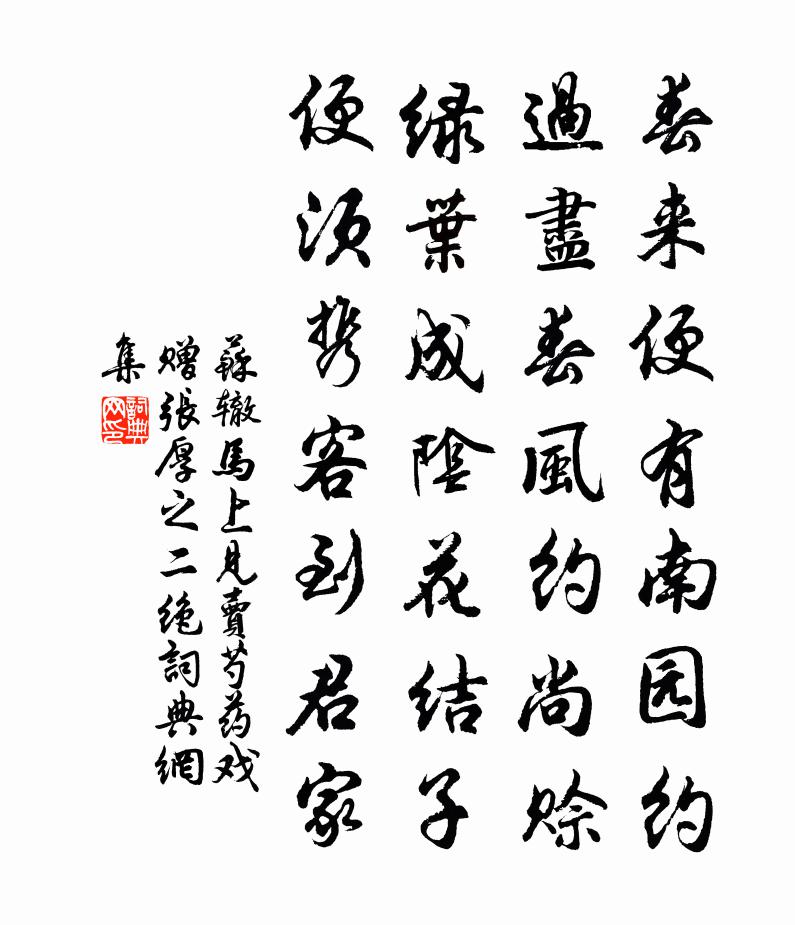 春来便有南园约
過盡春風約尚賒
绿葉成陰花结子
便须携客到君家
蘇辙馬上見賣芍药戏
赠張厚之二绝詞典網
集
詞典网印